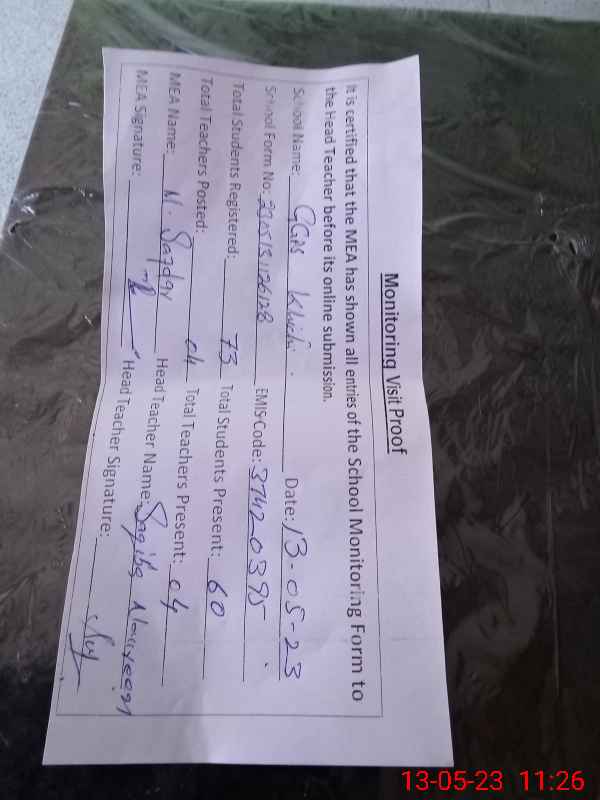 Monitoring Visit Proof
It is certified that the MEA has shown all entries of the School Monitoring Form to
the Head Teacher before its online submission.
School Name: GGPS Date: 13-05-23
School Form No: EMIS Code: 37420395
Total Students Registered: 73 Total Students Present: 60
Total Teachers Posted: 04 Total Teachers Present: 04
MEA Name: M. Safdar Head Teacher Name:
MEA Signature: Head Teacher Signature:
13-05-23 11:26